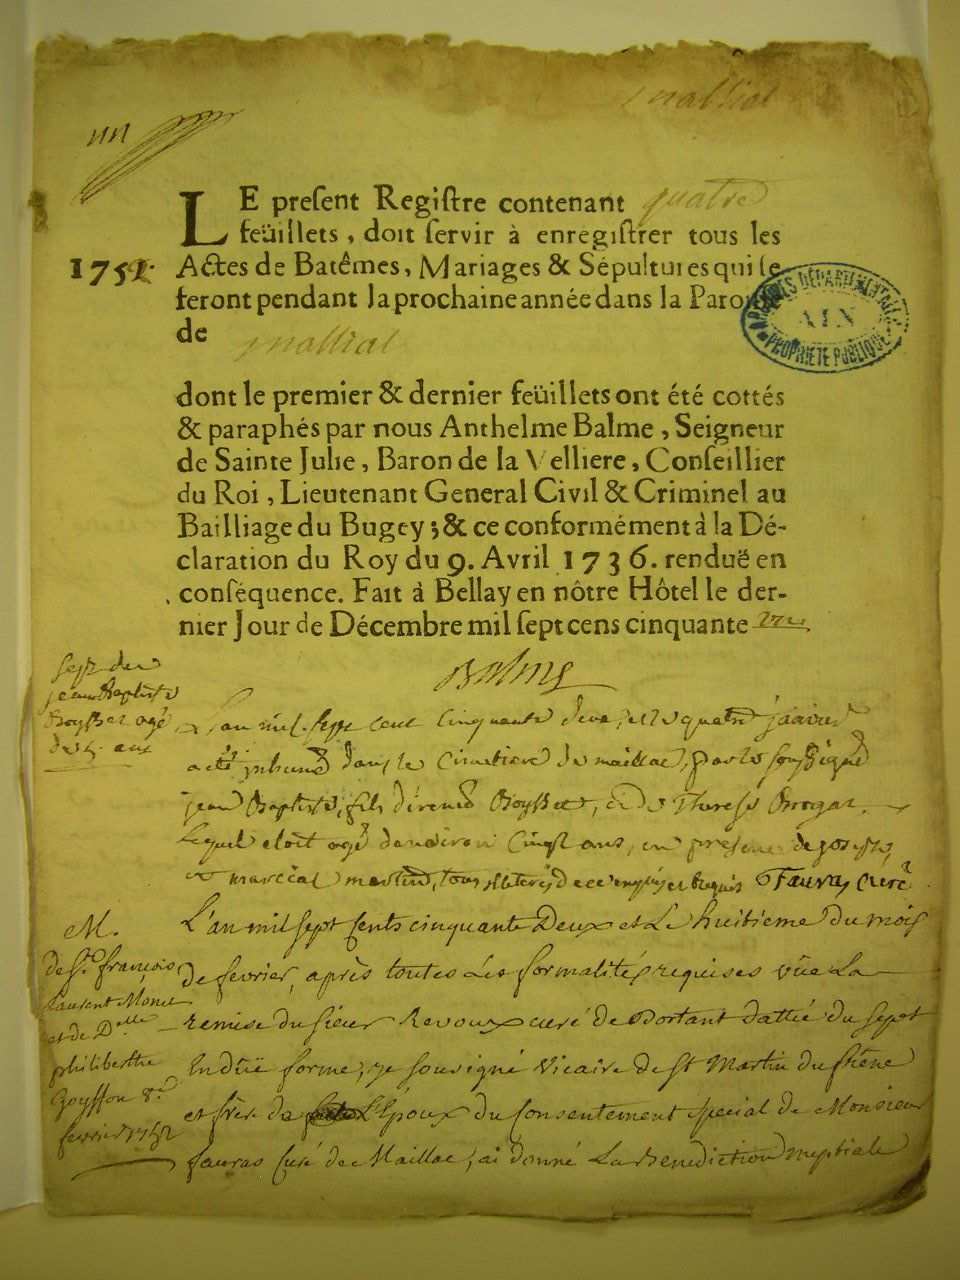 malliat
un
LE preſent Regiſtre contenant quatre
feüillets, doit ſervir à enregiſtrer tous les
1752
Actes de Batêmes, Mariages & Sépultures qui ſe
feront pendant la prochaine année dans la Paroiſſe
de malliat
ARCHIVES DÉPARTEMENTALES
AIN
PROPRIÉTÉ PUBLIQUE
dont le premier & dernier feüillets ont été cottés
& paraphés par nous Anthelme Balme, Seigneur
de Sainte Julie, Baron de la Velliere, Conſeillier
du Roi, Lieutenant General Civil & Criminel au
Bailliage du Bugey; & ce conformément à la Dé-
claration du Roy du 9. Avril 1736. renduë en
conſéquence. Fait à Bellay en nôtre Hôtel le der-
nier Jour de Décembre mil ſept cens cinquante un
Balme
jean Baptiste
Boysset agé
de 5. ans
L'an mil sept cent cinquante deux, et le quatre janvier
a été inhumé dans le Cimetiere de maillac, par le soussigné
jean Baptiste, fils d'
Boysset, et de Therese
Lequel etoit agé d'environ Cinq ans, en presence de joseph,
et marcial martin, tous illiterés de ce enquis et requis Fauras Curé
M.
de Sr. françois
Laurent Monet
et de Dlle
philiberthe
Goyffon 8e.
fevrier 1752
L'an mil sept cents cinquante Deux et Le huitième du mois
de fevrier, après toutes Les formalités requises vûe La
remise du sieur Revoux curé de Dortant dattée du sept
En düe forme, je sousigné Vicaire de St Martin du frêne
et frère de L'Epoux du consentement special de Monsieur
fauras Curé de Maillac, ai donné La Benediction nuptiale